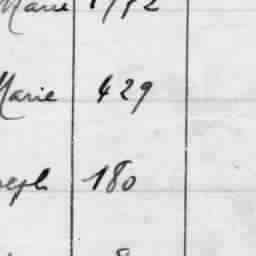 Marie 1772
Marie 429
seph 180